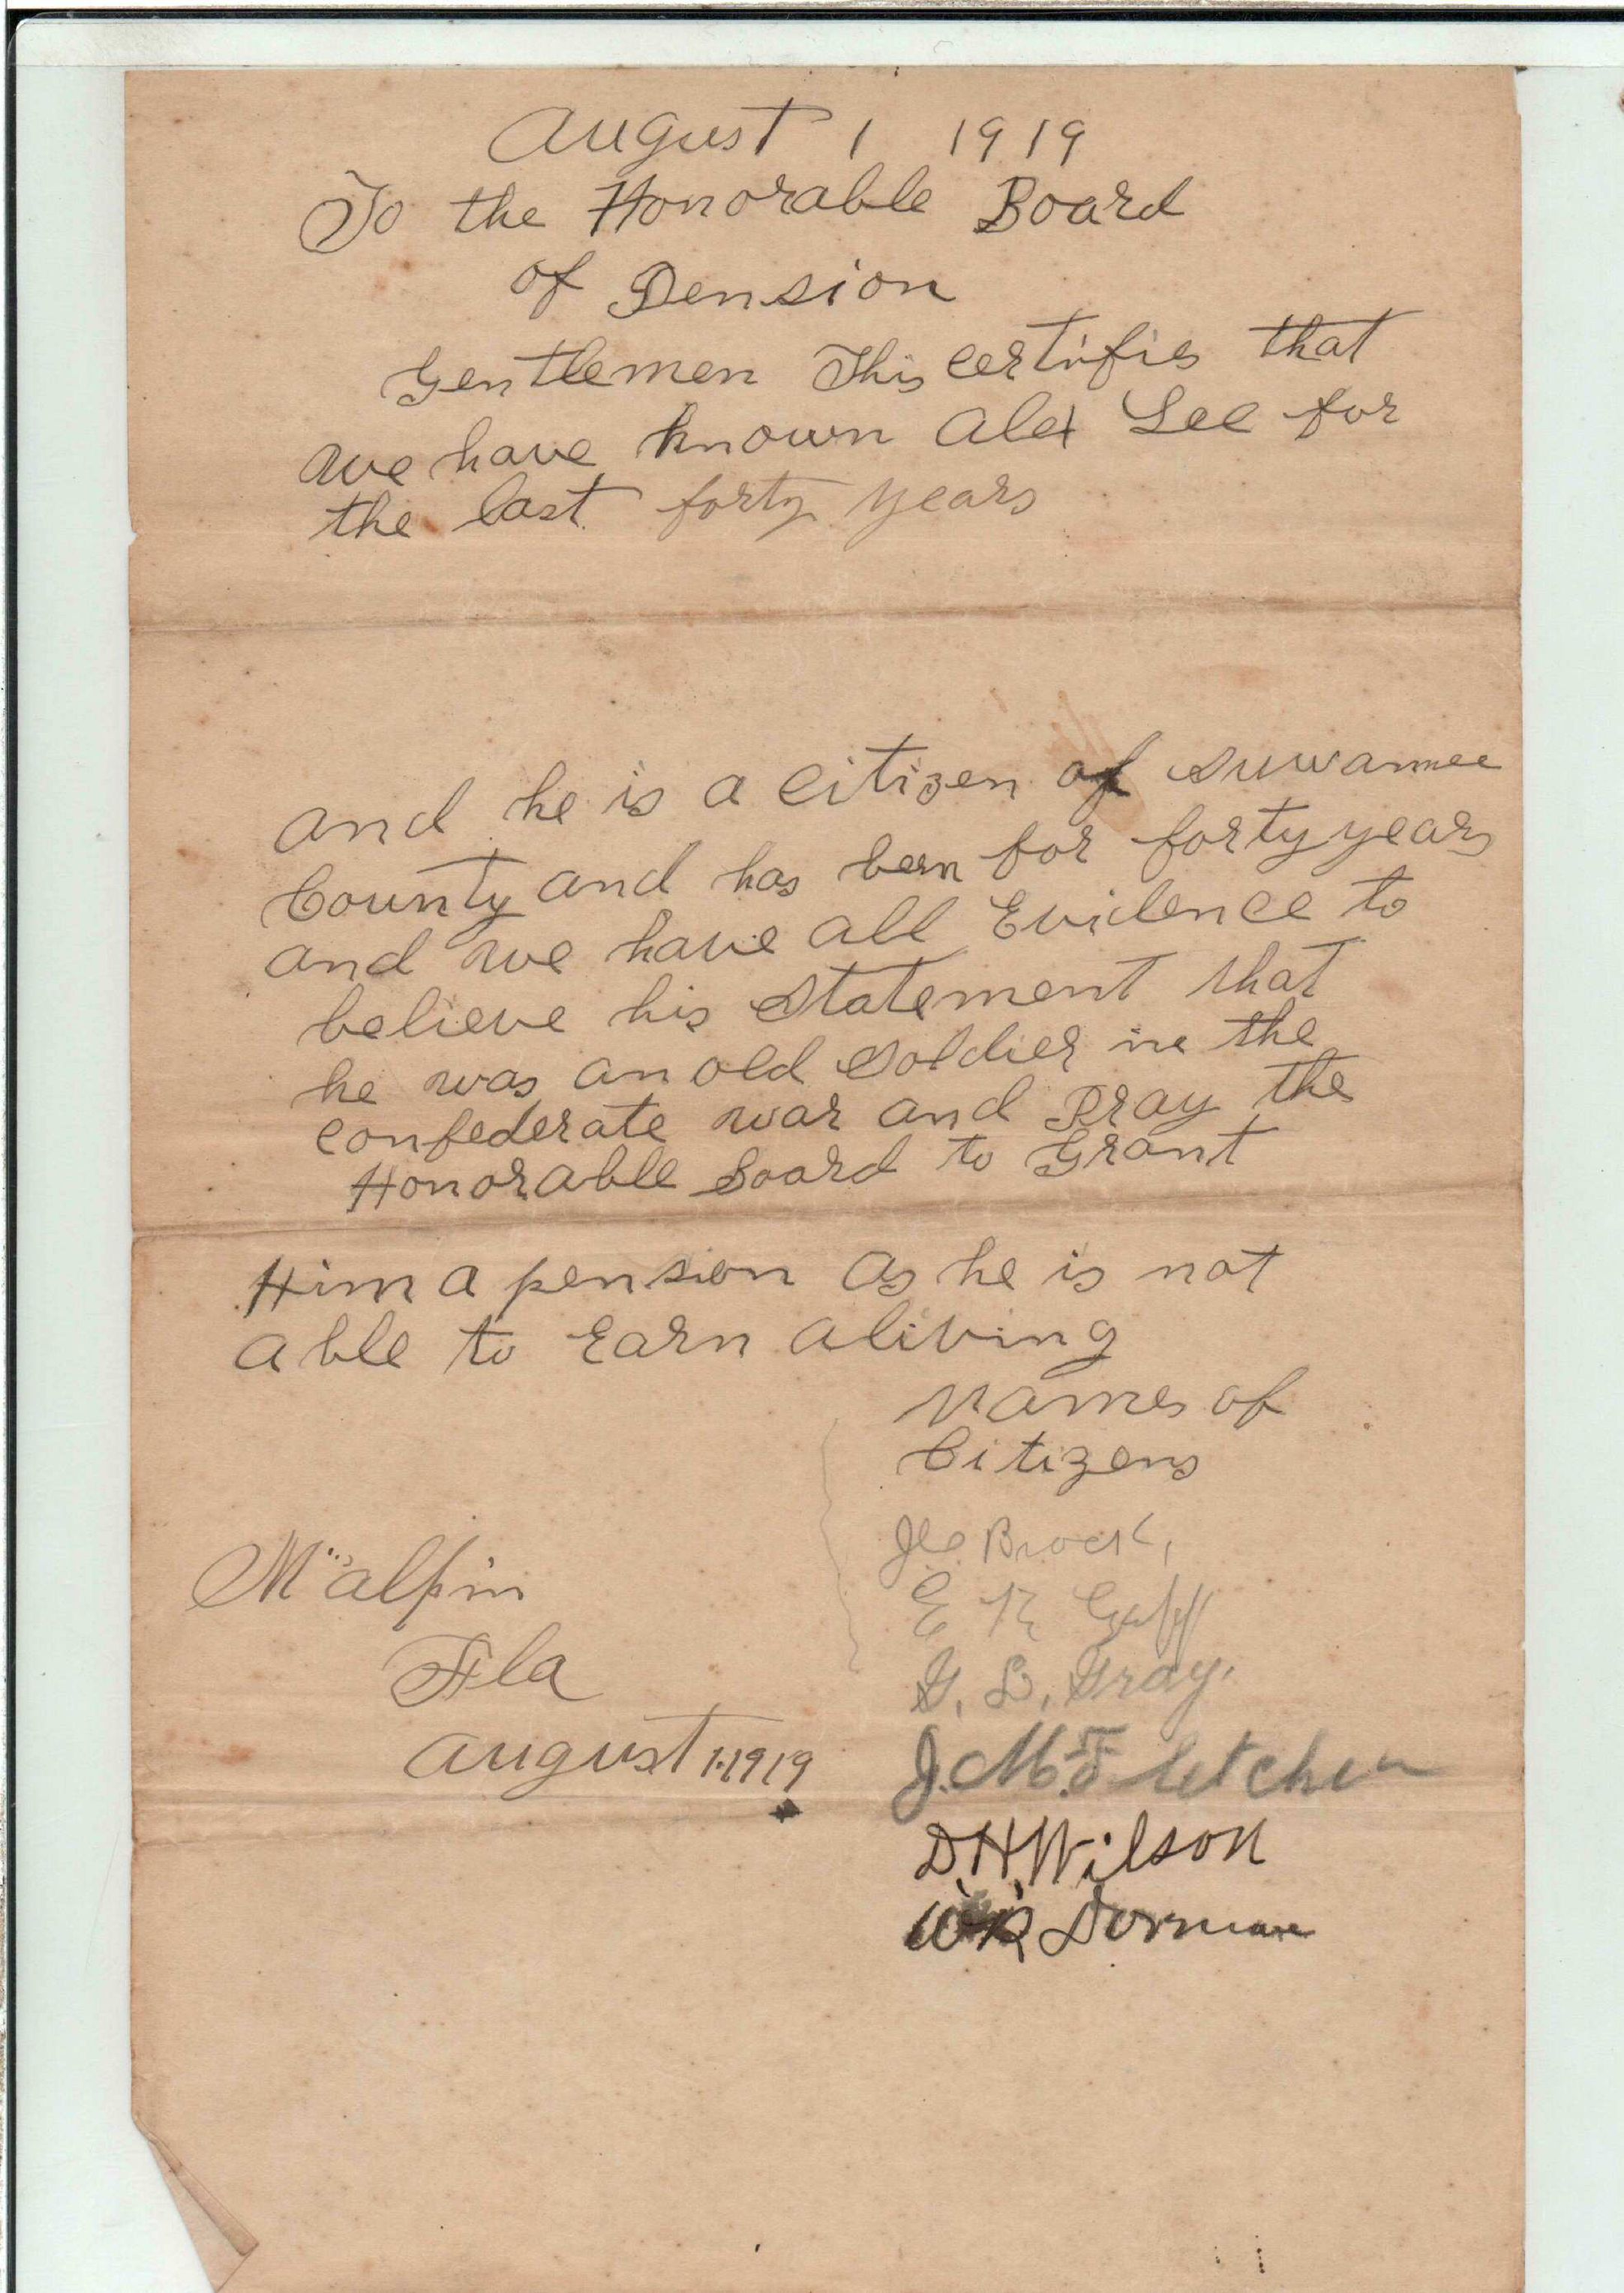 August 1 1919
To the Honorable Board
of Pension
Gentlemen This certifies that
we have known Alex Lee for
the last forty years
and he is a citizen of Suwannee
County and has been for forty years
and we have all Evidence to
believe his statement that
he was an old soldier in the
confederate war and Pray the
Honorable Board to Grant
Him a pension as he is not
able to Earn a living
names of
Citizens
Brock,
E R
G. L. Gray.
J. M. Fletcher
D H Wilson
W R Dorman
McAlpin
Fla
August 1.1919